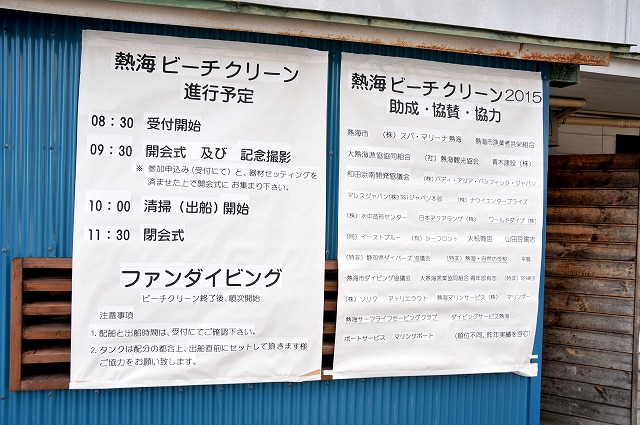 熱海 ビーチクリーン
進行予定
08：30 受付開始
09：30 開会式 及び 記念撮影
※ 参加申込み(受付にて) と、器材セッティングを
済ませた上で開会式に お集まり下さい。
10：00 清掃（出船）開始
11：30 閉会式
ファンダイビング
ビーチクリーン終了後、順次開始
注意事項
1. 配船と出船時間は、受付にてご確認下さい。
2. タンクは配分の都合上、出船直前にセットして頂きます様
ご協力をお願い致します。
熱海 ビーチクリーン2015
助成・協賛・協力
熱海市 （株）スパ・マリーナ熱海 熱海市漁業者共栄組合
大熱海漁協協同組合 （社）熱海観光協会 青木建設（株）
和田浜南開発協議会 （株）パディ・アジア・パシフィック・ジャパン
マレスジャパン(株) SSIジャパン本部 （株）ナウイエンタープライズ
（株）水中造形センター 日本アクアラング（株） ワールドダイブ（株）
（同）イーストブルー （有）シーフロント 大松商店 山田豆腐店
（特非）静岡県ダイバーズ協議会 （特非）熱海・自然の学校
熱海市ダイビング協議会 大熱海漁業協同組合 青年部有志
（株）ソリク アトリエラウト 熱海マリンサービス（株） マリンボー
熱海サーフライフセービングクラブ ダイビングサービス熱海
ボートサービス マリンサポート （順位不同、昨年実績を含む）